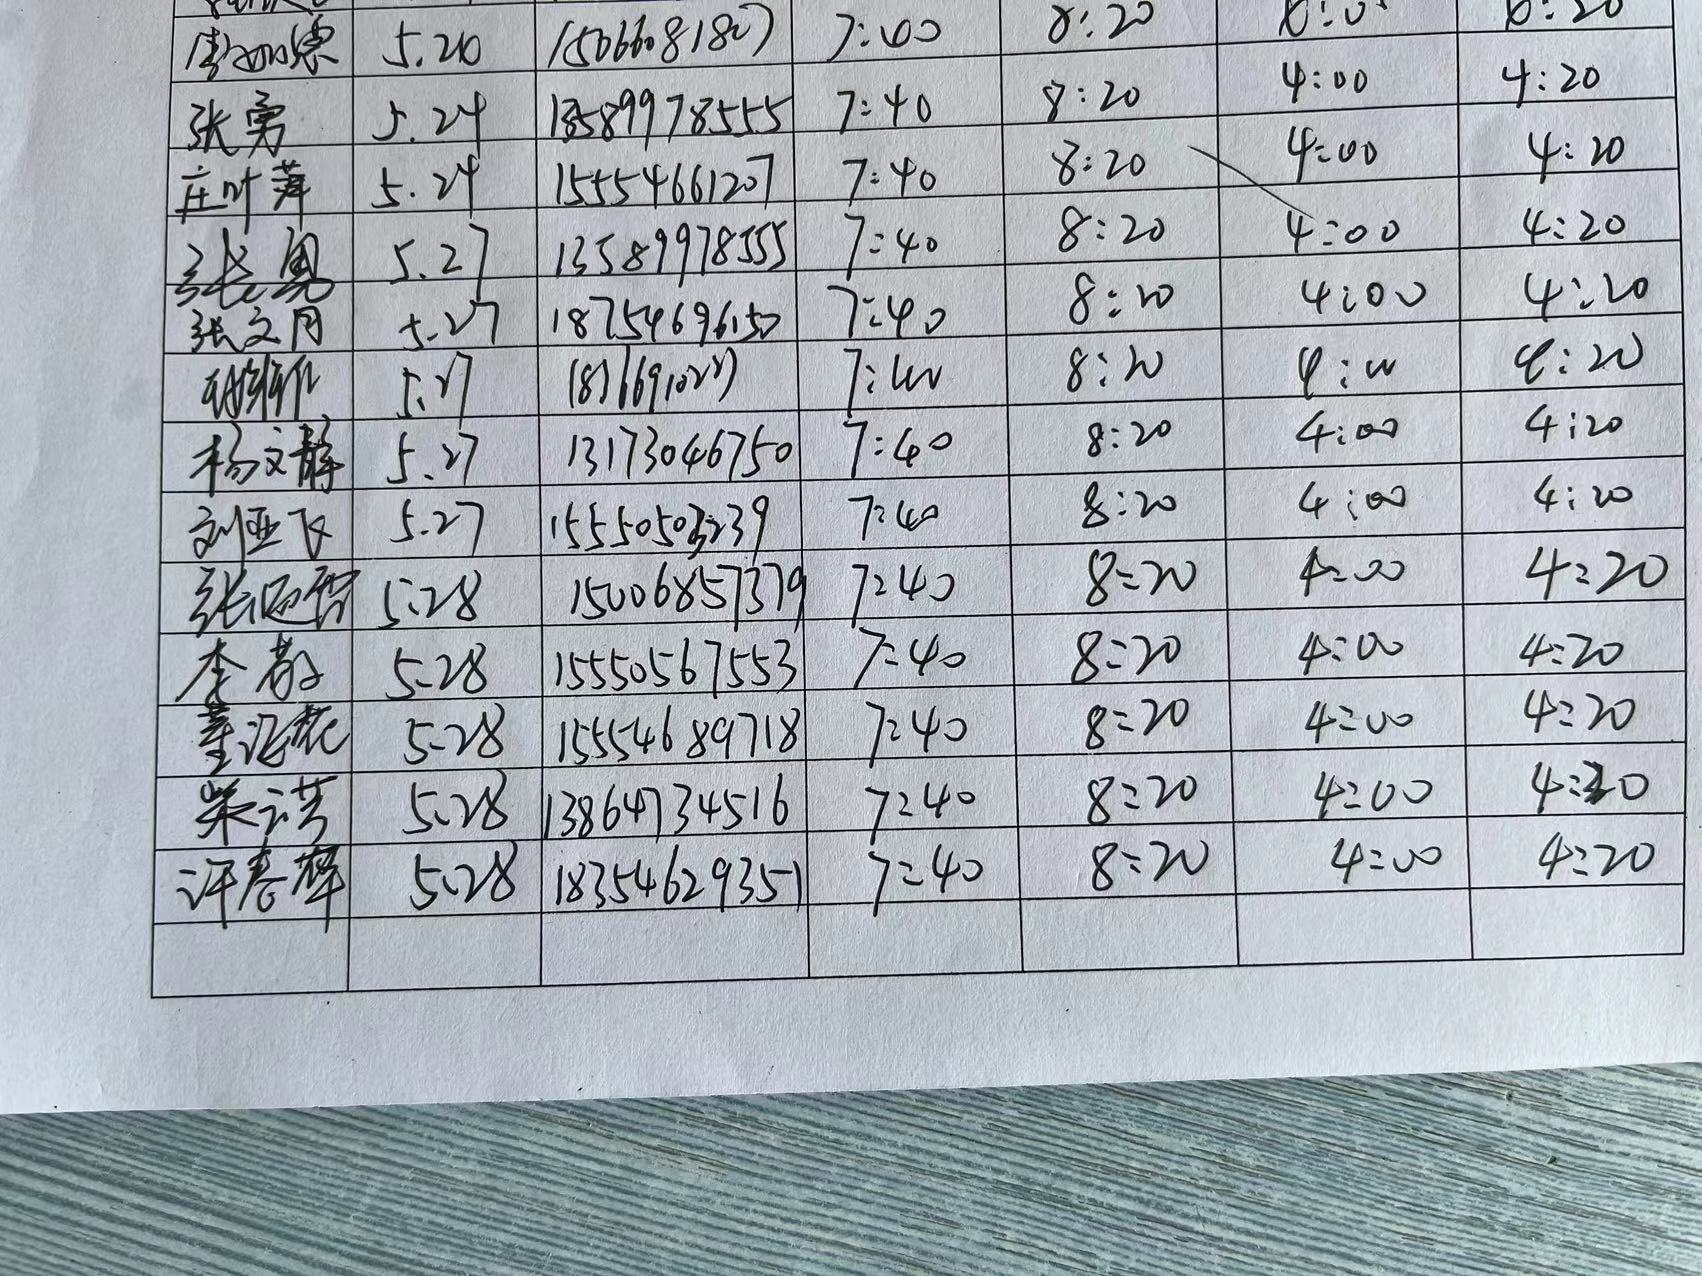 5.20 15066081807 7:00 8:20
张勇 5.24 13589978555 7:40 8:20 4:00 4:20
庄叶萍 5.24 15554661207 7:40 8:20 4:00 4:20
张勇 5.27 13589978555 7:40 8:20 4:00 4:20
张文月 5.27 18754696150 7:40 8:20 4:00 4:20
5.27 8:20 4:20
杨文静 5.27 13173046750 7:40 8:20 4:00 4:20
刘亚飞 5.27 15550503239 7:40 8:20 4:00 4:20
5.28 15006857379 7:40 8:20 4:00 4:20
李敬 5.28 15550567553 7:40 8:20 4:00 4:20
5.28 15554689718 7:40 8:20 4:00 4:20
5.28 13864734516 7:40 8:20 4:00 4:20
许春辉 5.28 18354629351 7:40 8:20 4:00 4:20